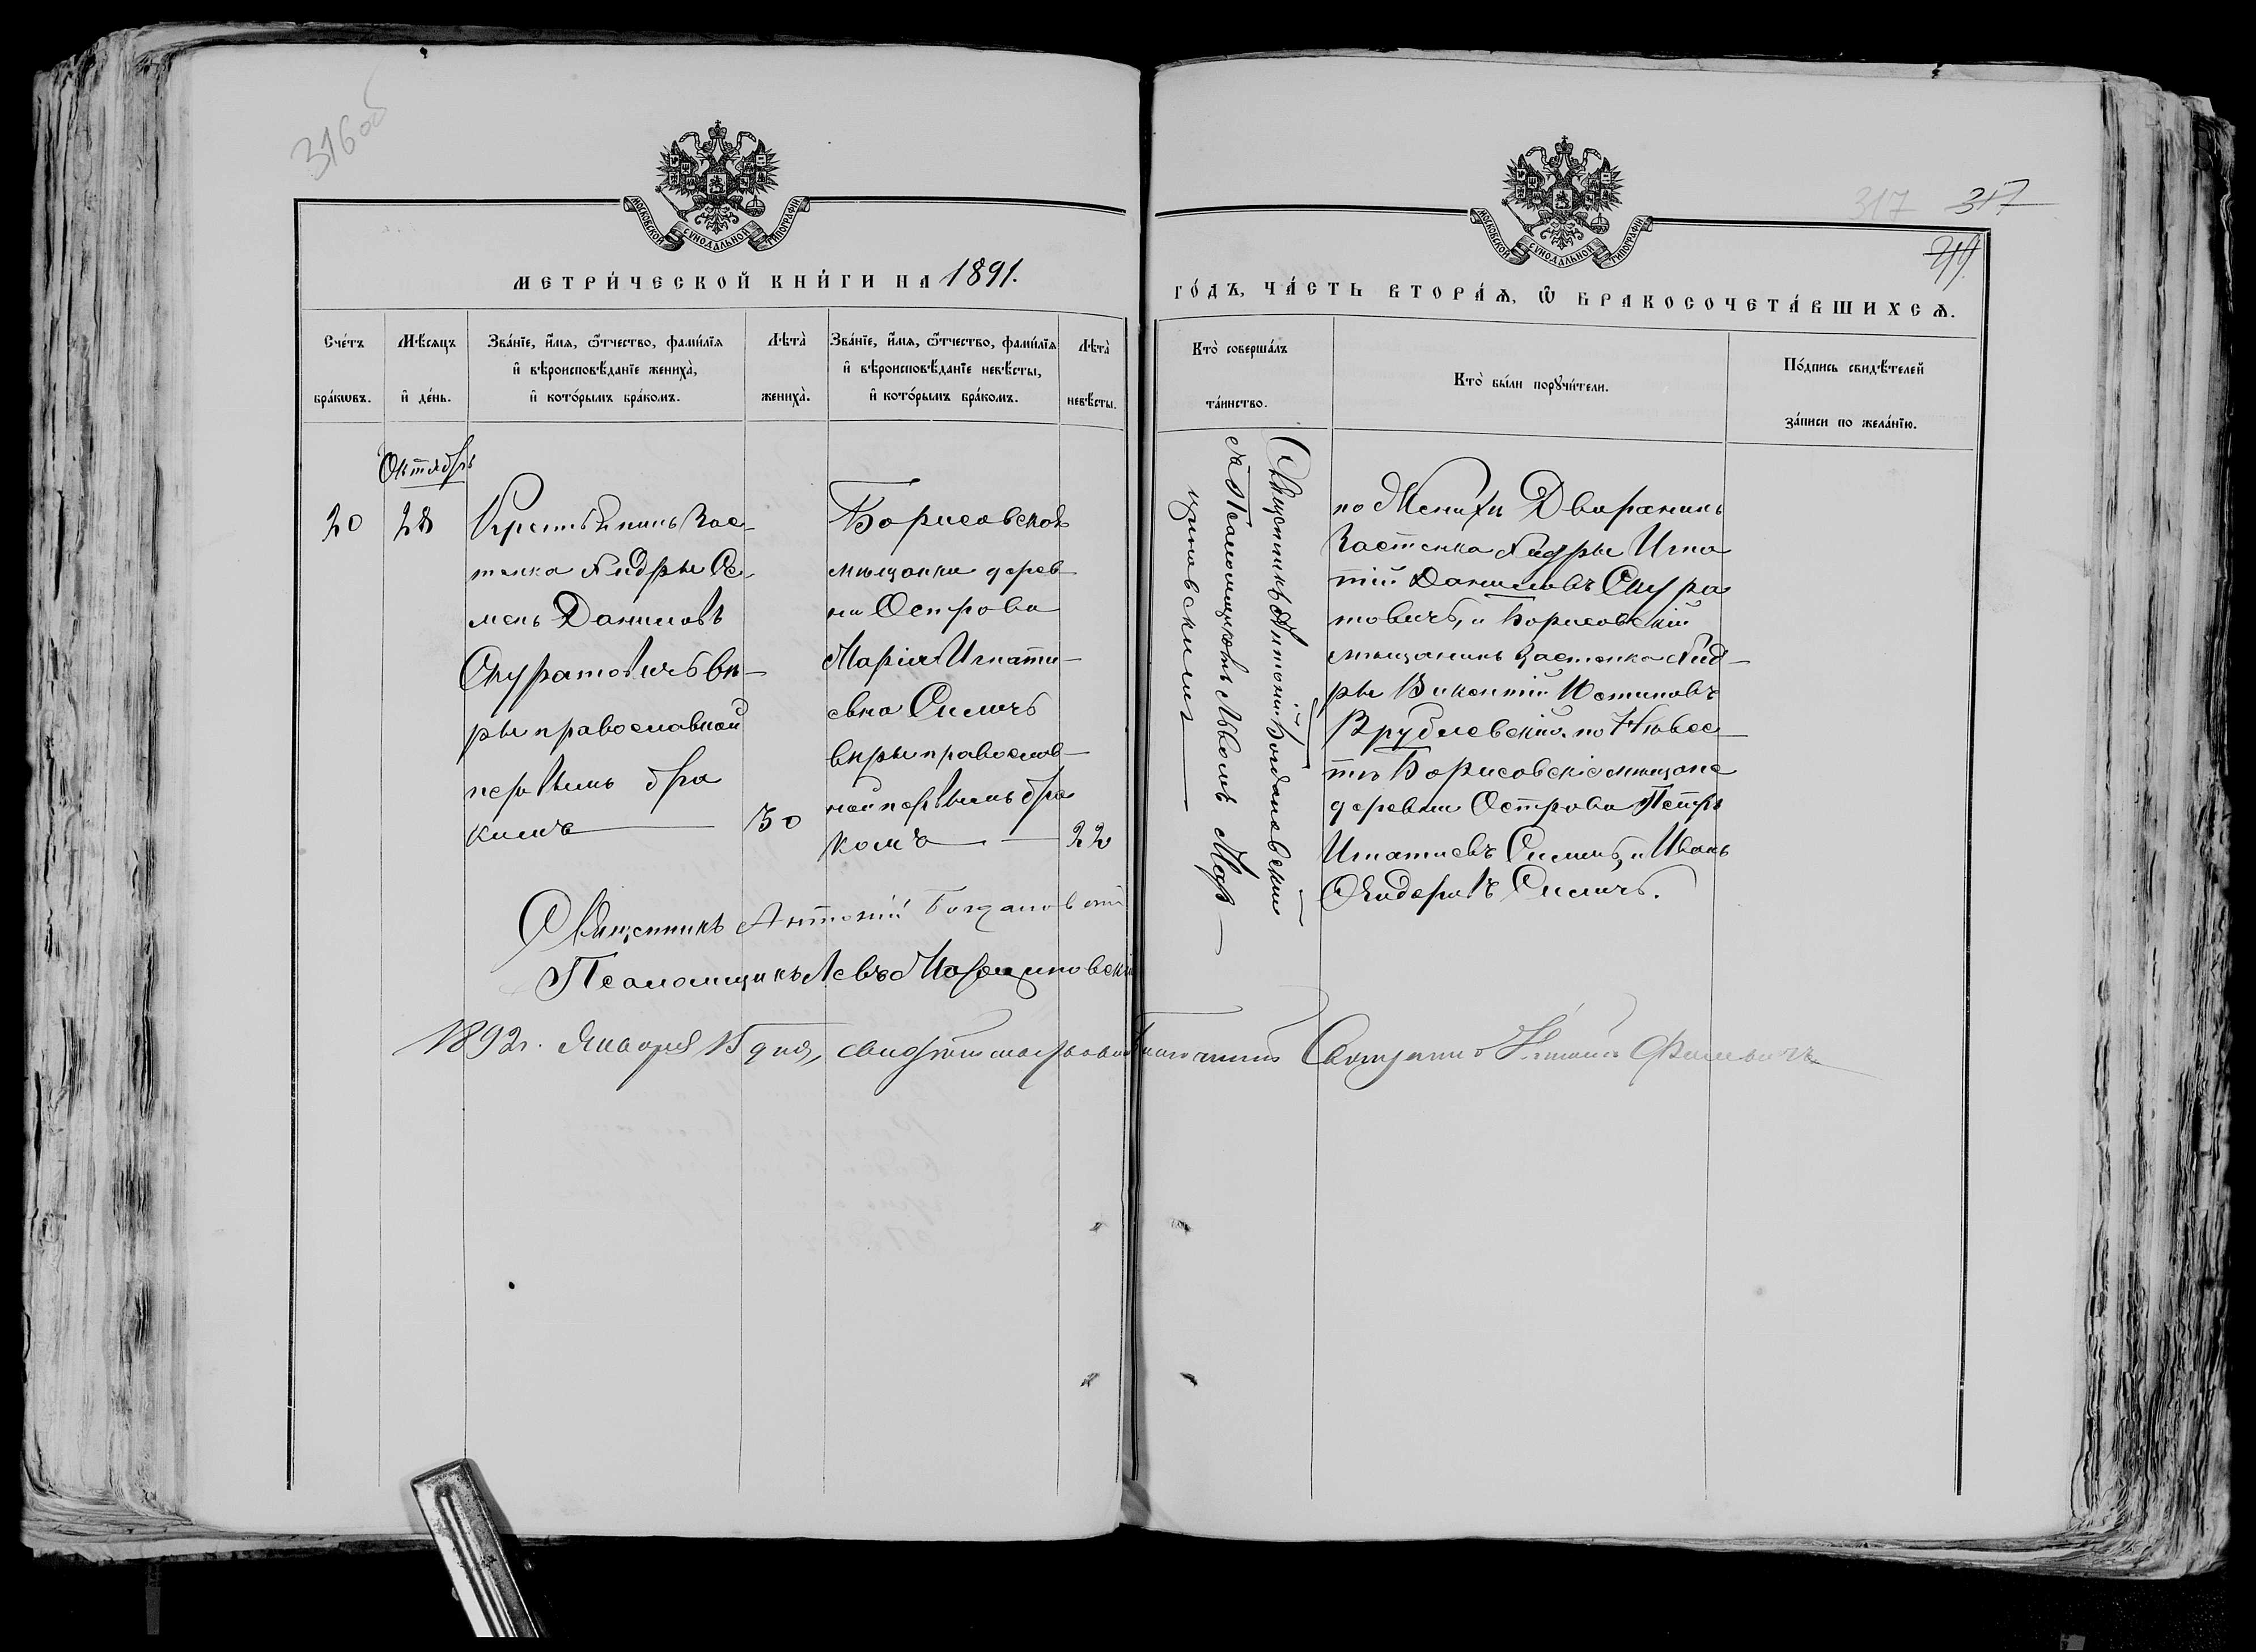 316 об
МОСКОВСКОЙ СУНОДАЛЬНОЙ ТИПОГРАФІИ
МЕТРИ́ЧЕСКОЙ КНИ́ГИ НА 1891.
Сче́тъ бра́кѡвъ.
Мѣ́сяцъ и҆ де́нь.
Зва́нїе, и҆́мя, ѻ҆́тчество, фами́лїя
и҆ вѣроисповѣ́данїе жениха̀,
и҆ кото́рымъ бра́комъ.
Лѣта̀ жениха̀.
Зва́нїе, и҆́мя, ѻ҆́тчество, фами́лїя
и҆ вѣроисповѣ́данїе невѣ́сты,
и҆ кото́рымъ бра́комъ.
Лѣта̀ невѣ́сты.
Октябрь
20
28
Крестьянинъ Зас-
тенка Гидры Се-
менъ Даниловъ
Скуратовичъ вѣ-
ры православной
первымъ бра
комъ
30
Борисовская
мѣщанка дерев
ни Острова
Марія Игнати-
евна Силичъ
вѣры православ-
ной первымъ бра
комъ
22
Священникъ Антоній Богдановскій
Псаломщикъ Левъ Марциновскій
1892г. Января 15 дня, свидѣтельствовалъ Благочинный Священникъ
317 317
МОСКОВСКОЙ СУНОДАЛЬНОЙ ТИПОГРАФІИ
ГО́ДЪ, ЧА́СТЬ ВТОРА́Ѧ, Ѽ БРАКОСОЧЕТА́ВШИХСѦ.
Кто̀ соверша́лъ
та́инство.
Кто̀ бы́ли порꙋчи́тели.
По́дпись свидѣ́телей
за́писи по жела́нїю.
Священникъ Антоній Богдановскій
съ Псаломщикомъ Львомъ Мар-
циновскимъ
по Женихѣ Дворянинъ
Застенка Гидры Игна
тій Даниловъ Скура
товичъ, и Борисовскій
мѣщанинъ Застенка Гид-
ры Викентій Устиновъ
Врублевскій. по Невѣс-
тѣ Борисовскіе мѣщане
деревни Острова Петръ
Игнатіевъ Силичъ, и Иванъ
Ѳедоровъ Силичъ.